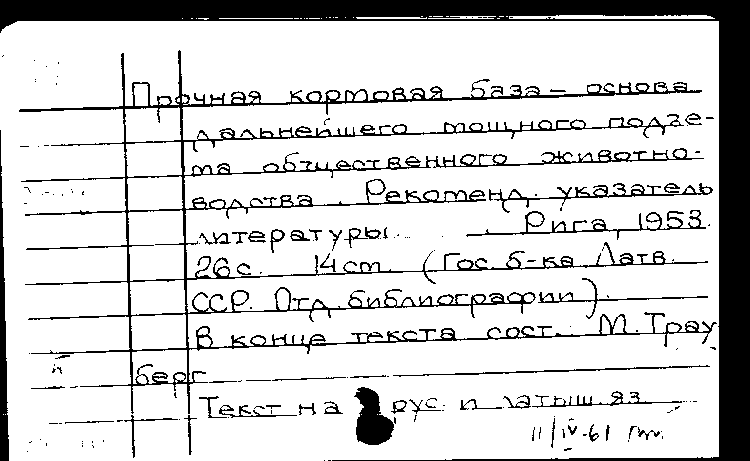 Прочная кормовая база – основа
дальнейшего мощного подъе-
ма общественного животно-
водства. Рекоменд. указатель
литературы. Рига, 1953.
26с. 14cm. (Гос. б-ка Латв.
ССР. Отд. библиографии).
В конце текста сост. М. Трау
берг
Текст на рус. и латыш. яз.
11/IV-61